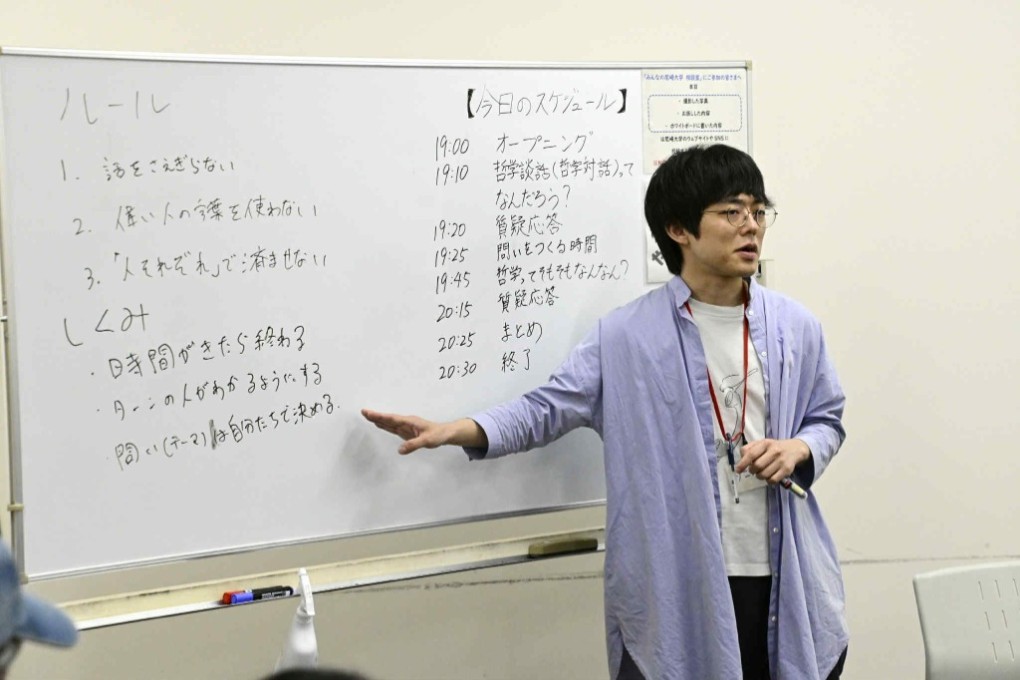 ルール
1. 話をさえぎらない
2. 偉い人の言葉を使わない
3. 「人それぞれ」で済ませない
しくみ
・時間がきたら終わる
・ターンの人がわかるようにする
・問い(テーマ)は自分たちで決める.
【今日のスケジュール】
19:00 オープニング
19:10 哲学談話(哲学対話)って
なんだろう?
19:20 質疑応答
19:25 問いをつくる時間
19:45 哲学ってそもそもなんなん?
20:15 質疑応答
20:25 まとめ
20:30 終了
「みんなの尼崎大学 相談室」にご参加の皆さまへ
本日
・撮影した写真
・お話しした内容
・ホワイトボードに書いた内容
は尼崎大学のウェブサイトや SNS に